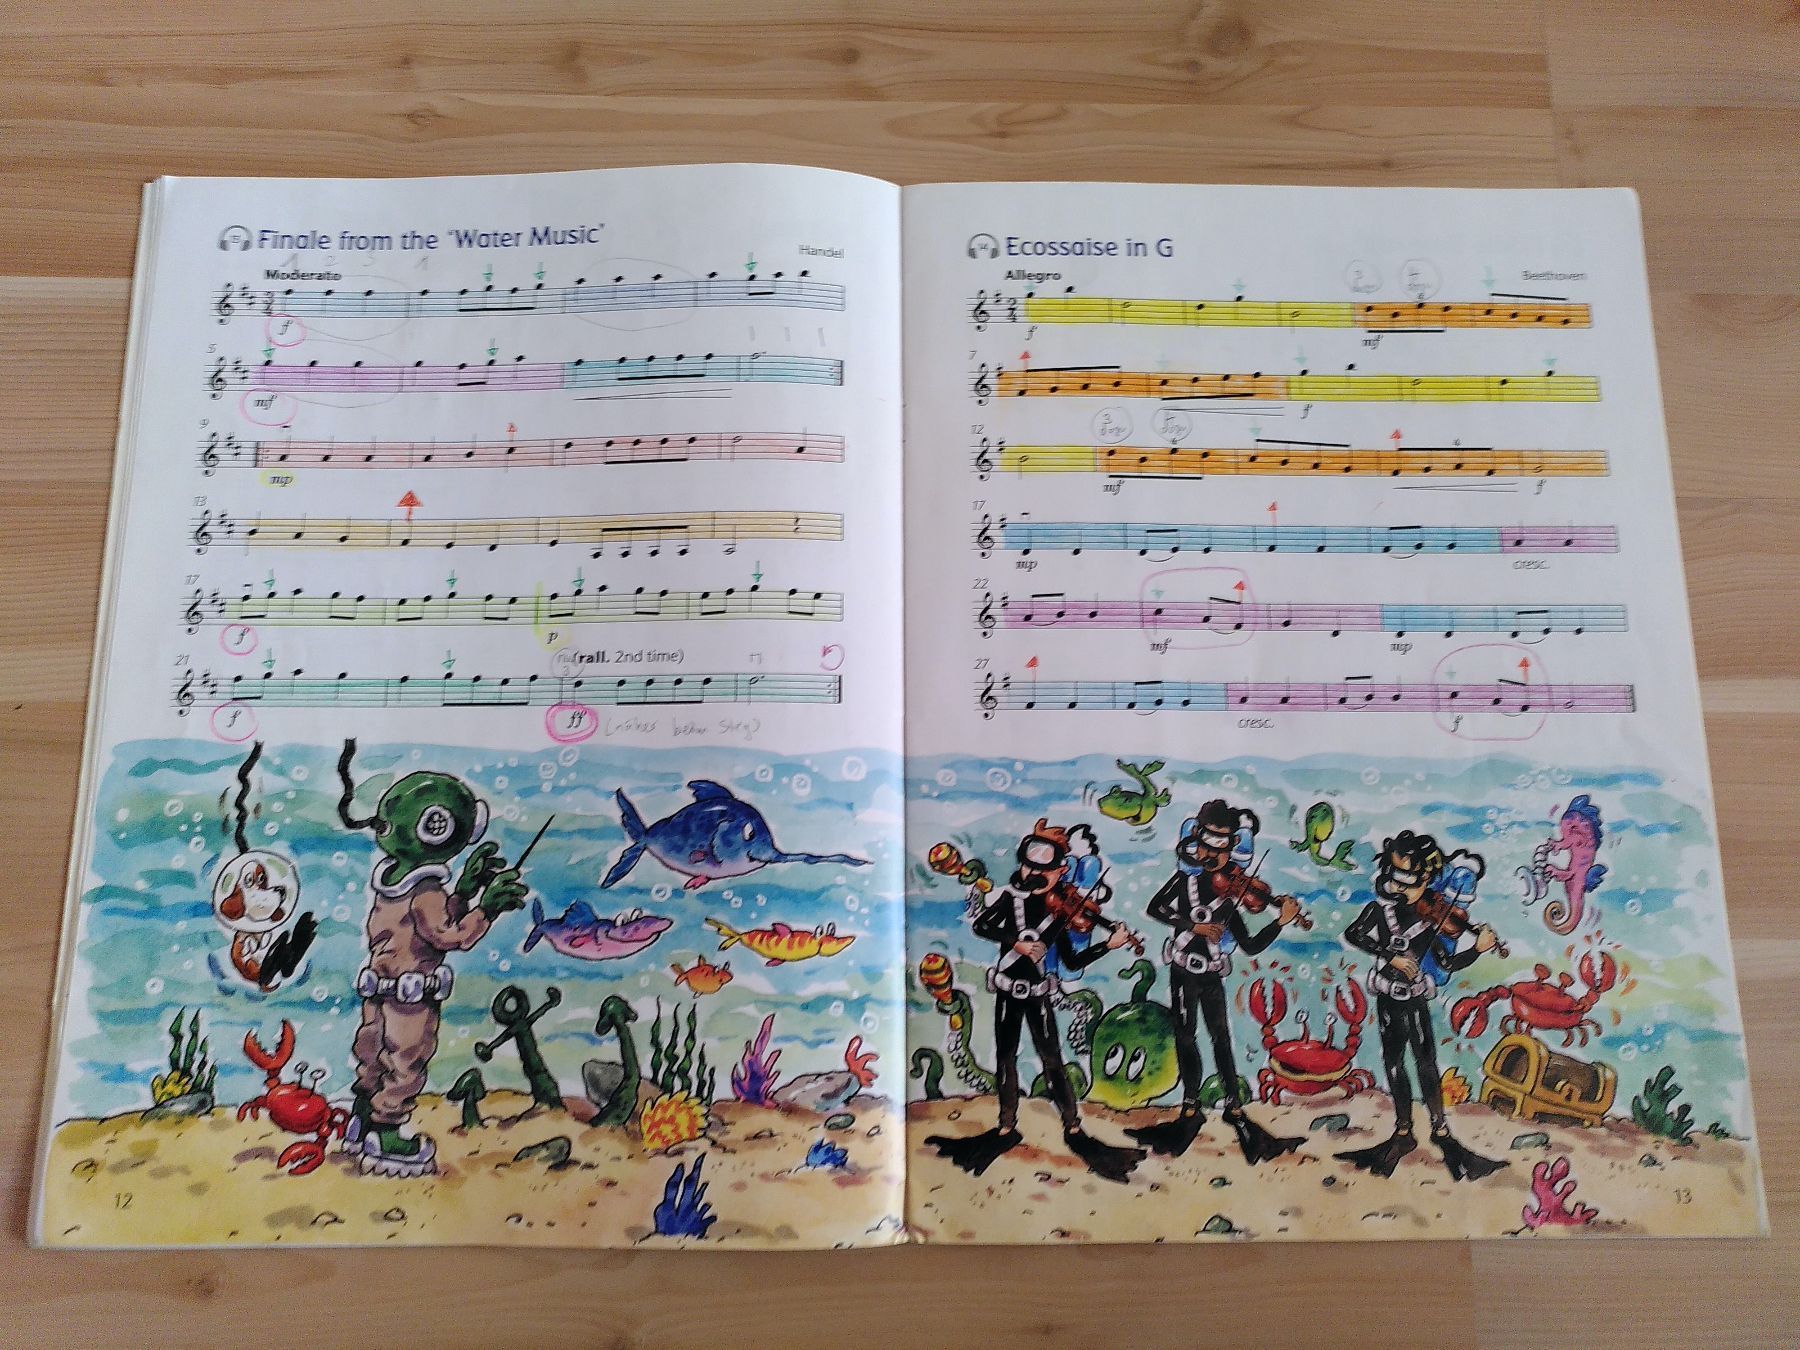 Finale from the 'Water Music'
Handel
1 2 3 1
Moderato
3
4
f
5
mf
9
mp
13
17
f
p
21
(rall. 2nd time)
3
f
ff
12
Ecossaise in G
Allegro
Beethoven
2
4
f
mf
7
f
12
3
mf
f
17
mp
cresc.
22
mf
mp
27
cresc.
f
13